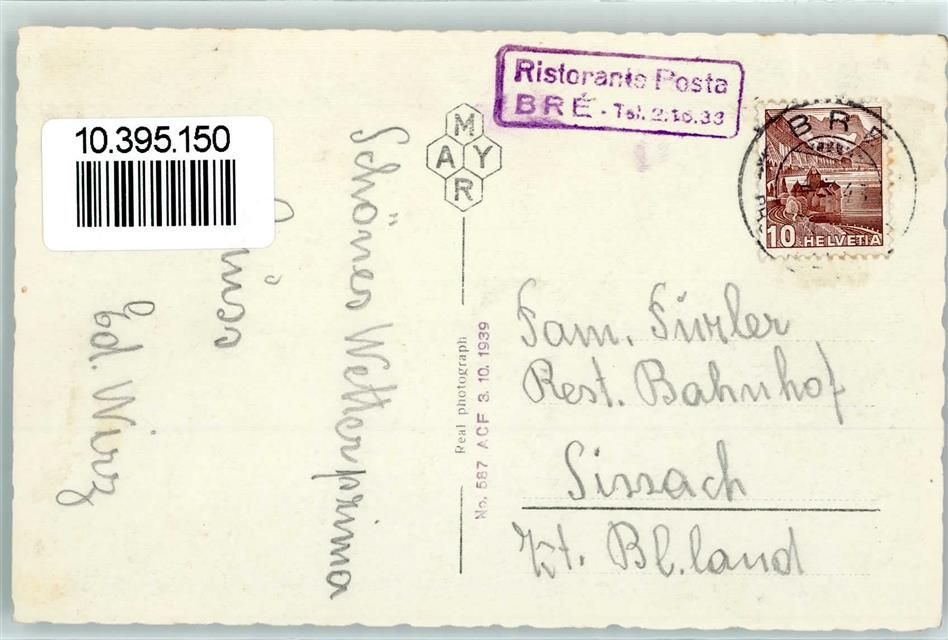 10.395.150
MAYR
Ristorante Posta
BRÉ - Tel. 2.16.33
BRÉ
10 HELVETIA
Schönes Wetter prima
Ed. Wirz
Real photograph
No. 587 ACF 3.10.1939
Fam. Fürler
Rest. Bahnhof
Sissach
Kt. Bl.land